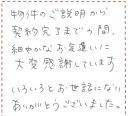 物件のご説明から
契約完了までの間、
細やかなお気遣いに
大変感謝しています
いろいろとお世話になり
ありがとうございました。